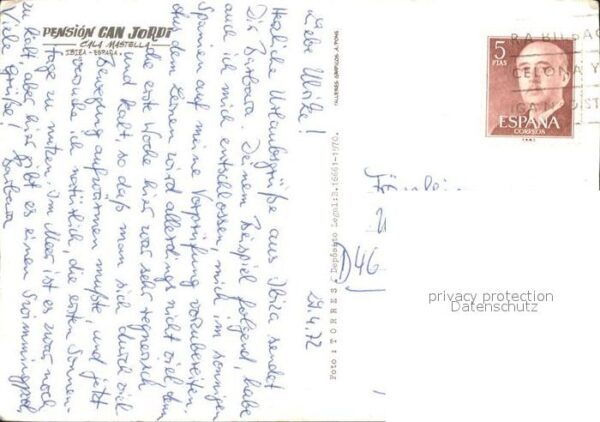 PENSIÓN CAN JORDI
CALA MASTELLA
IBIZA - ESPAÑA
29.4.72
Liebe Ulrike!
Herzliche Urlaubsgrüße aus Ibiza sendet
Dir Barbara. Deinem Beispiel folgend, habe
auch ich mich entschlossen, mich im sonnigen
Spanien auf meine Vorprüfung vorzubereiten.
Aus dem Lernen wird allerdings nicht viel, denn
die erste Woche hier war sehr regnerisch
und kalt, so daß man sich durch viel
Bewegung aufwärmen mußte, und jetzt
versuche ich natürlich, die ersten Sonnen-
tage zu nutzen. Im Meer ist es zwar noch
zu kalt, aber hier gibt es einen Swimmingpool.
Viele Grüße! Barbara
TALLERES GRAFICOS A. PONS
Foto: TORRES - Depósito Legal: B. 16661-1970.
5
PTAS
ESPAÑA
CORREOS
CELONA Y
Fräulein
D 46
privacy protection
Datenschutz